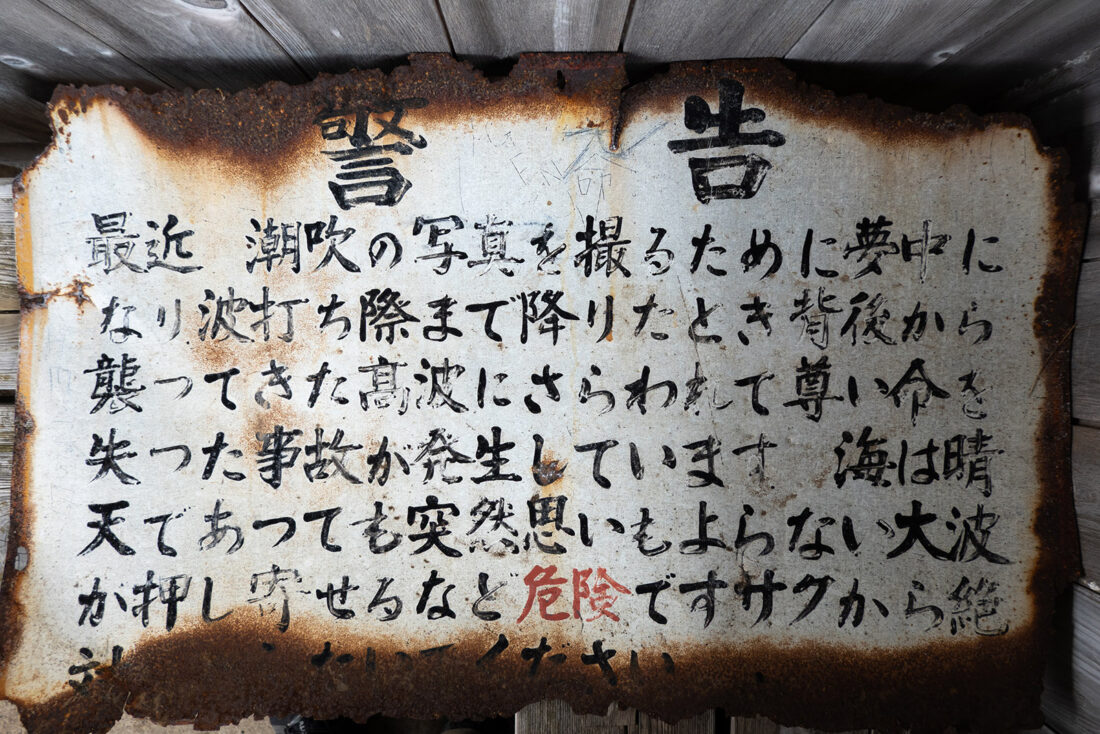 警告
最近 潮吹の写真を撮るために夢中に
なり波打ち際まで降りたとき背後から
襲ってきた高波にさらわれて尊い命を
失った事故が発生しています 海は晴
天であっても突然思いもよらない大波
が押し寄せるなど危険ですサクから絶
対 ないでください